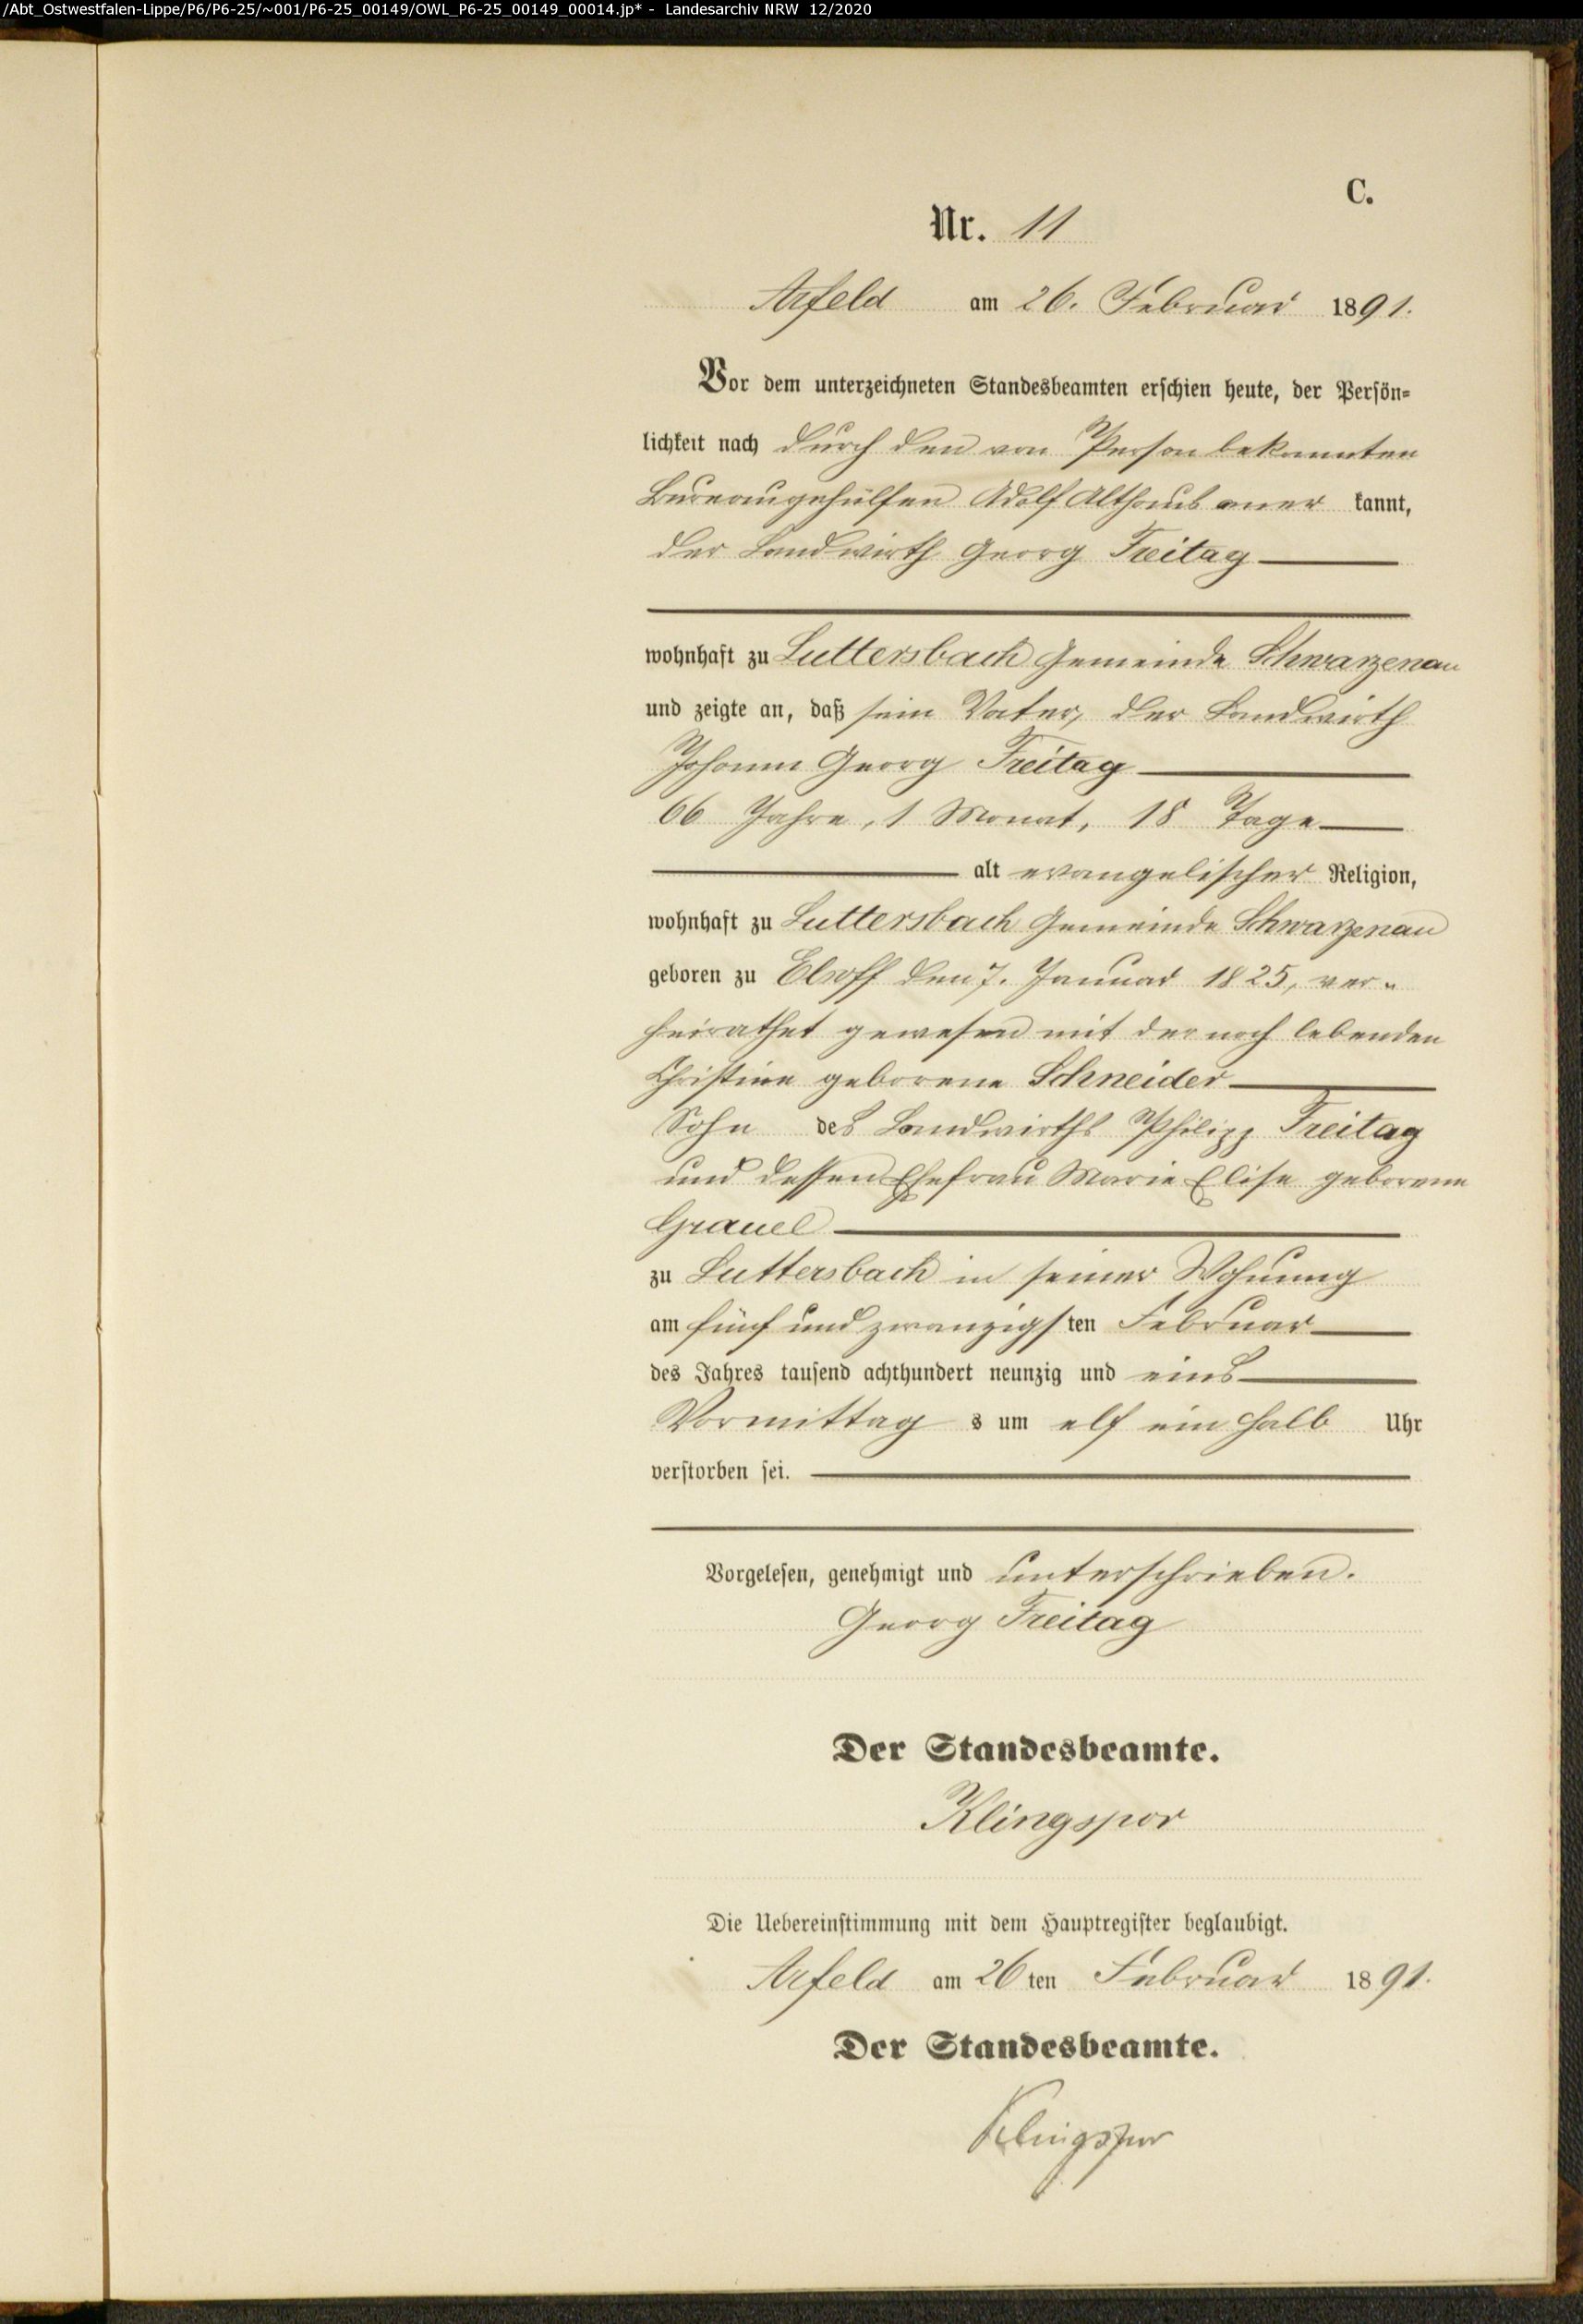 /Abt_Ostwestfalen-Lippe/P6/P6-25/~001/P6-25_00149/OWL_P6-25_00149_00014.jp* - Landesarchiv NRW 12/2020
C.
Nr. 11
Arfeld am 26. Februar 1891.
Vor dem unterzeichneten Standesbeamten erschien heute, der Persön-
lichkeit nach durch den von Person bekannten
Bureaugehülfen Adolf Althaus aner kannt,
der Landwirth Georg Freitag
wohnhaft zu Luttersbach Gemeinde Schwarzenau
und zeigte an, daß sein Vater, der Landwirth
Johann Georg Freitag
66 Jahre, 1 Monat, 18 Tage
alt evangelischer Religion,
wohnhaft zu Luttersbach Gemeinde Schwarzenau
geboren zu Elsoff den 7. Januar 1825, ver-
heirathet gewesen mit der noch lebenden
Christine geborene Schneider
Sohn des Landwirths Philipp Freitag
und dessen Ehefrau Marie Elise geborene
Grauel
zu Luttersbach in seiner Wohnung
am fünf und zwanzigsten Februar
des Jahres tausend achthundert neunzig und eins
Vormittag s um elf ein halb Uhr
verstorben sei.
Vorgelesen, genehmigt und unterschrieben.
Georg Freitag
Der Standesbeamte.
Klingspor
Die Uebereinstimmung mit dem Hauptregister beglaubigt.
Arfeld am 26ten Februar 1891.
Der Standesbeamte.
Klingspor